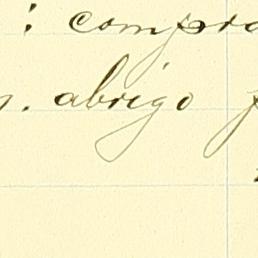 : compra
. abrigo p